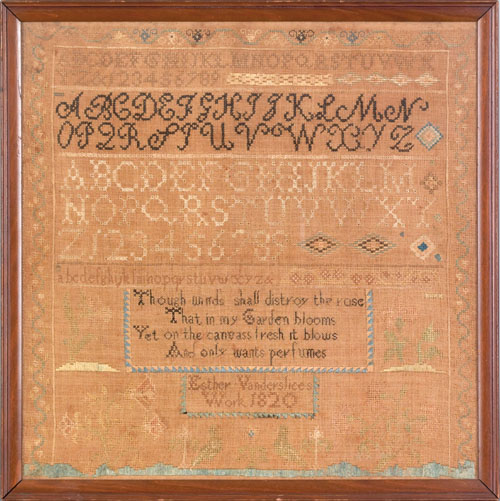 ABCDEFGHIJKLMNOPQRSTUVWX
YZ&123456789
ABCDEFGHIJKLMN
OPQRSTUVWXYZ
ABCDEFGHIJKLM
NOPQRSTUVWXY
Z123456789
abcdefghijklmnopqrstuvwxyz&
Though winds shall distroy the rose
That in my Garden blooms
Yet on the canvass fresh it blows
And only wants perfumes
Esther Vanderslices
Work 1820